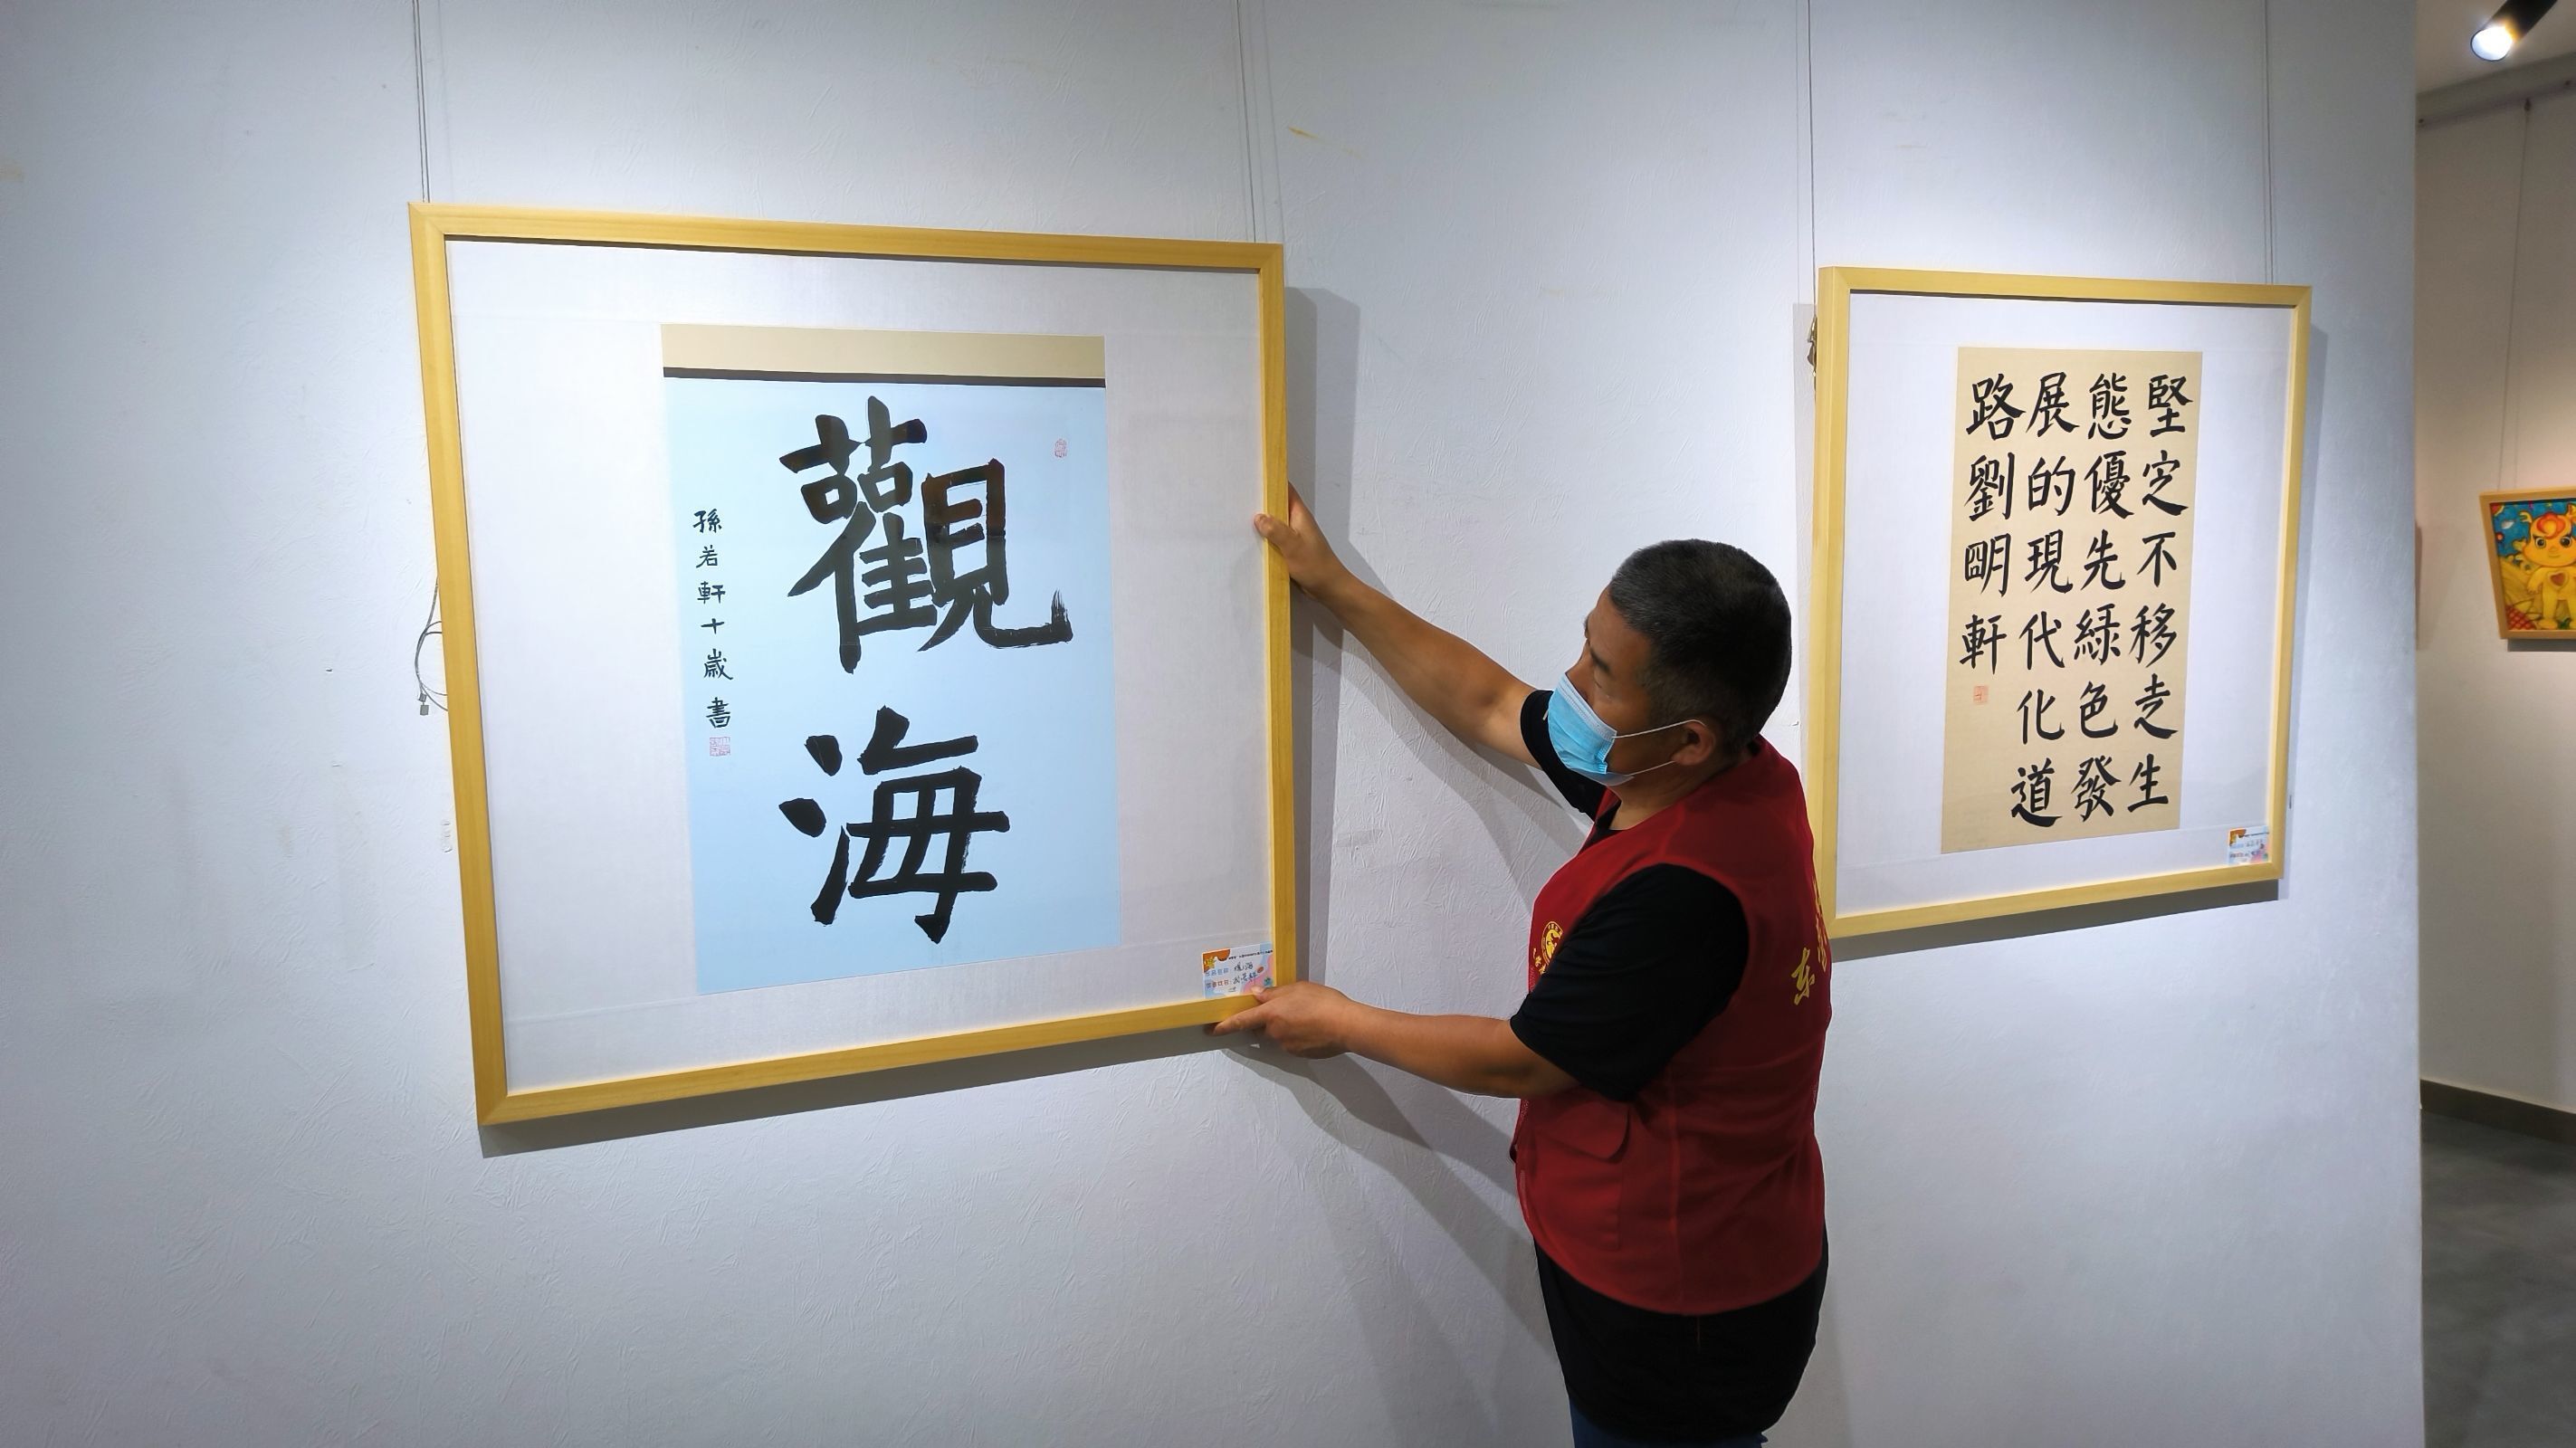 觀海
孫若軒十歲書
堅定不移走生
態優先綠色發
展的現代化道
路劉明軒
东